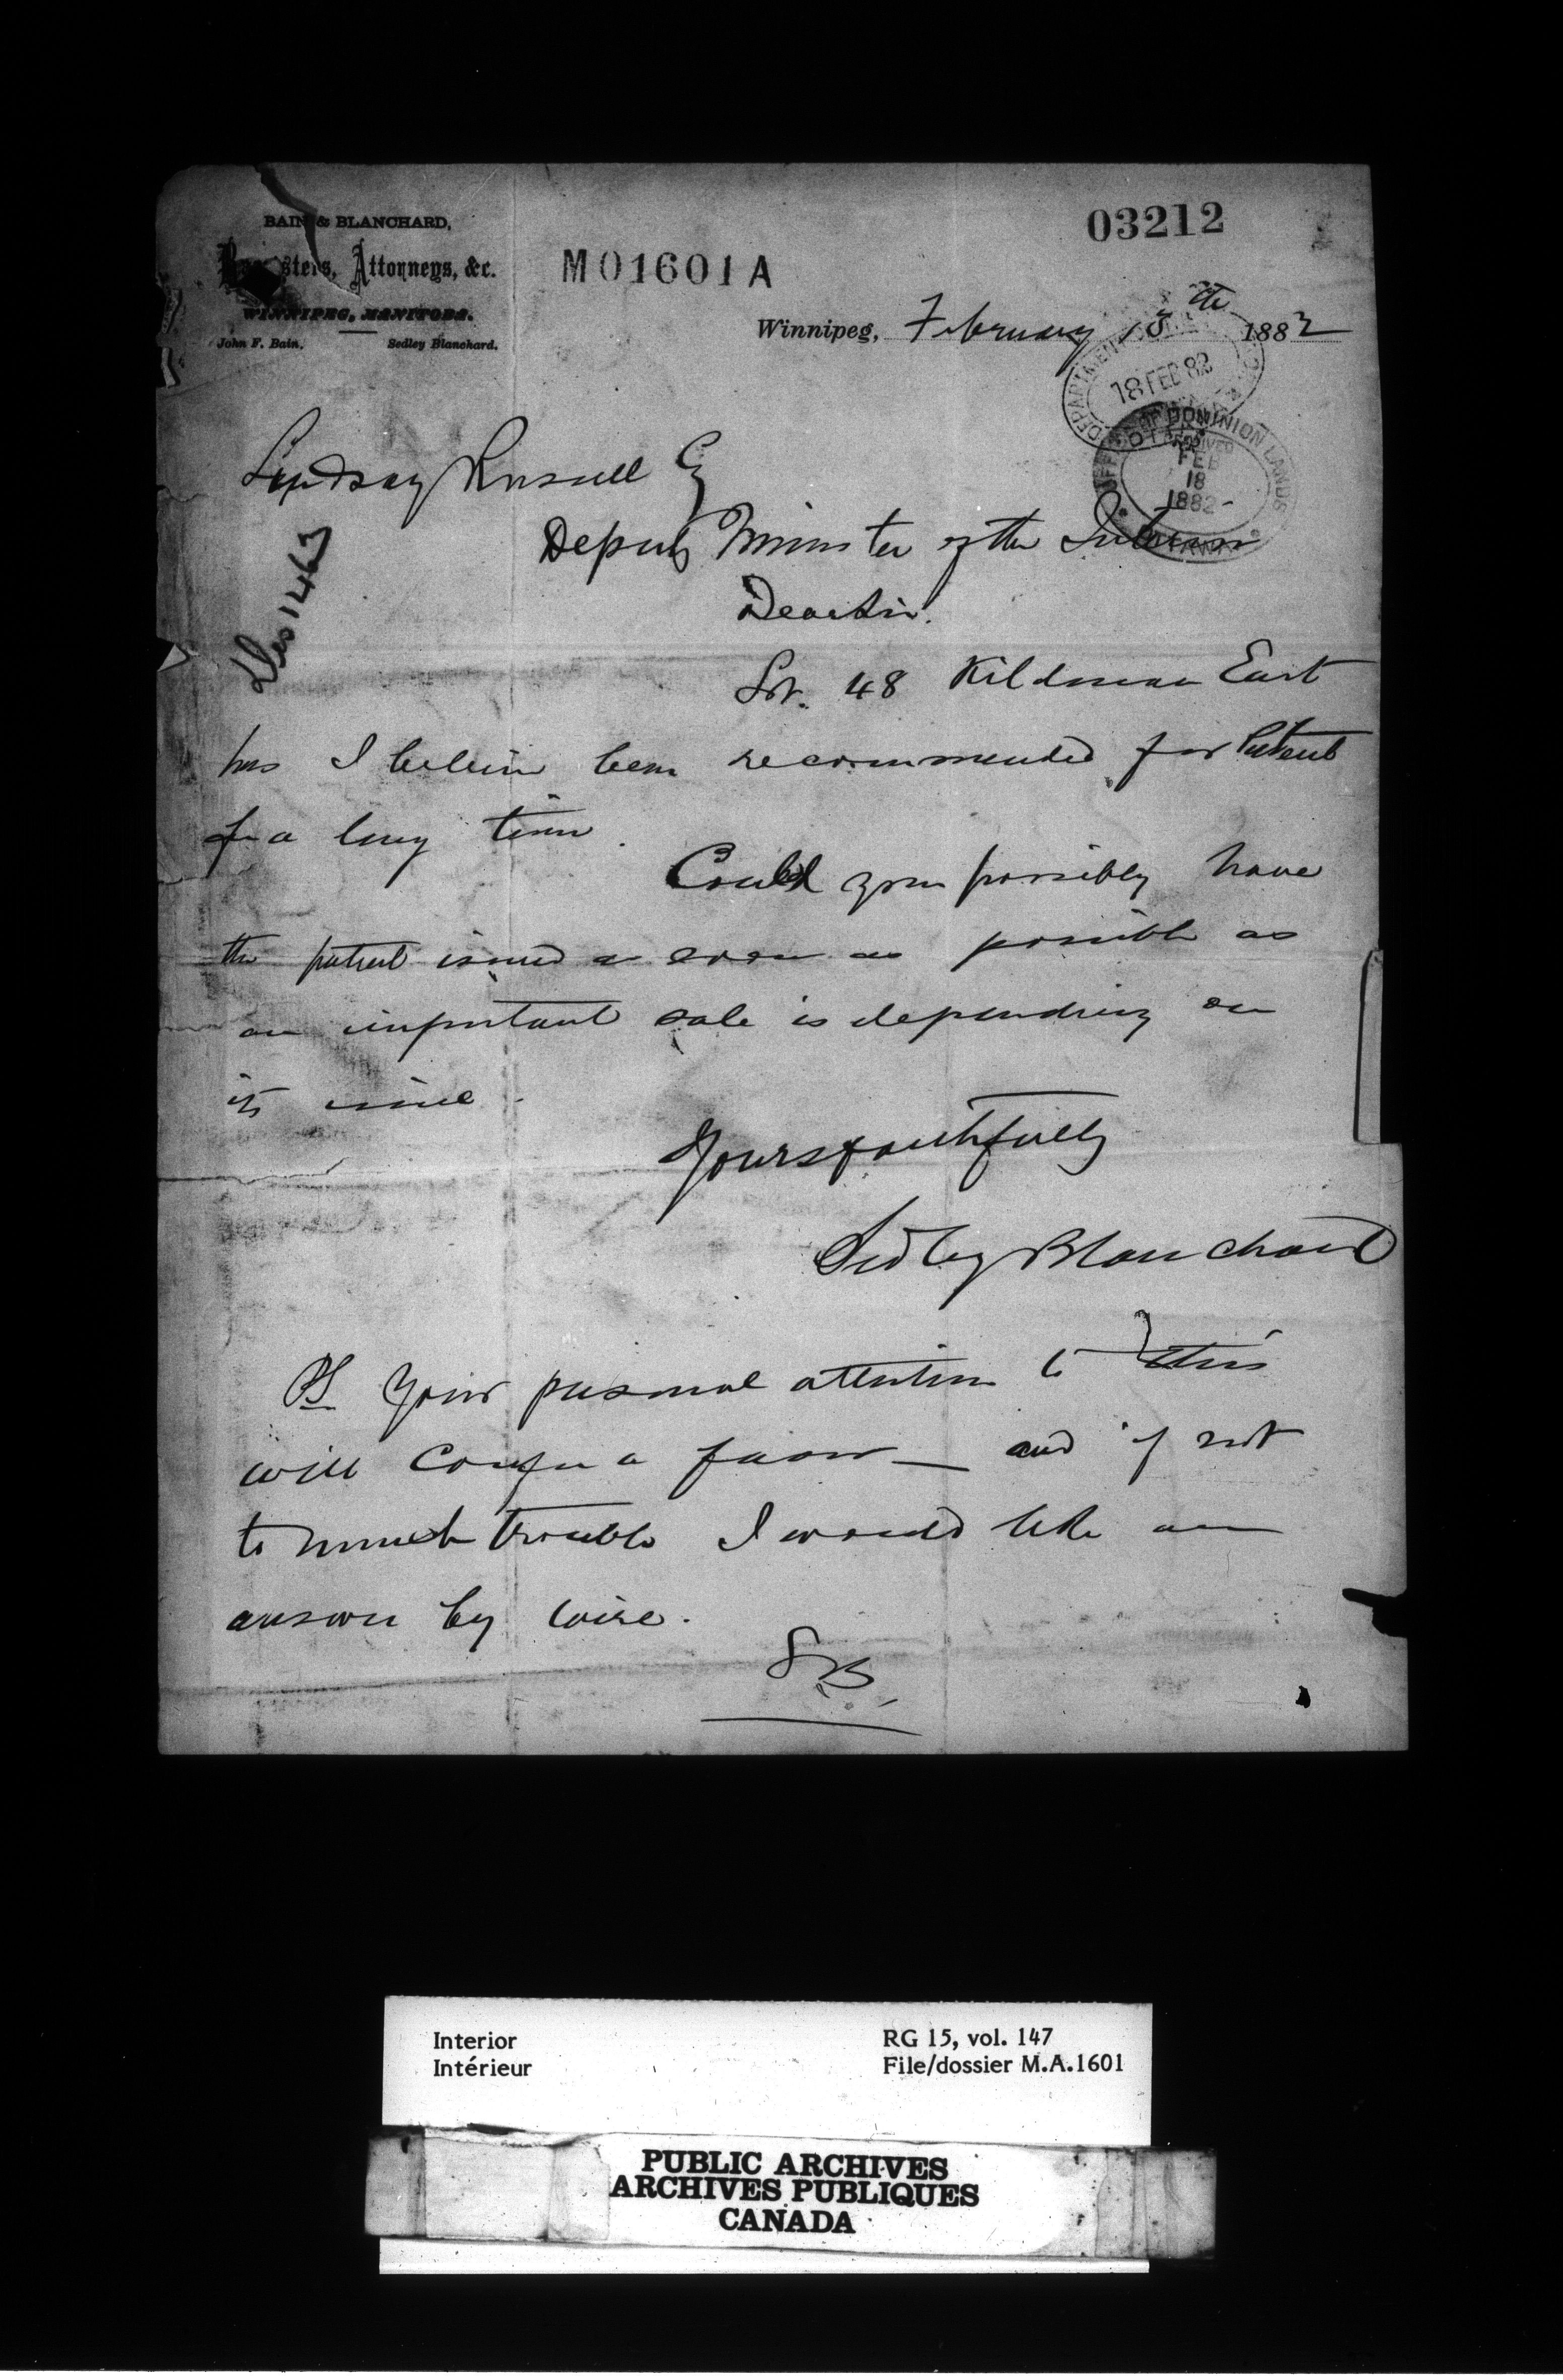 03212
BAIN & BLANCHARD,
Barristers, Attorneys, &c.
WINNIPEG, MANITOBA.
John F. Bain. Sedley Blanchard.
M01601A
Winnipeg, February 13th 1882
DEPARTMENT
18 FEB 82
OFFICE OF DOMINION LANDS
RECEIVED
FEB
18
1882
OTTAWA
Lindsay Russell Esq
Deputy Minister of the Interior
Dear Sir.
1463
Lot. 48 Kildonan East
has I believe been recommended for Patent
for a long time.
Could you possibly have
the patent issued as soon as possible as
an important sale is depending on
its issue.
Yours faithfully
Sedley Blanchard
PS Your personal attention to this
will confer a favor — and if not
to much trouble I would like an
answer by wire.
SB.
Interior RG 15, vol. 147
Intérieur File/dossier M.A.1601
PUBLIC ARCHIVES
ARCHIVES PUBLIQUES
CANADA